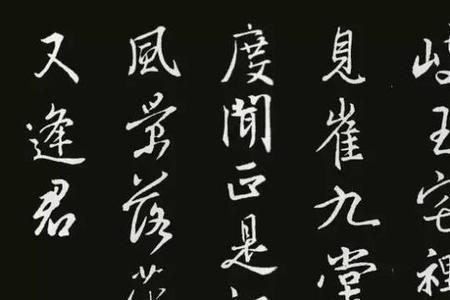 岐王宅裡
見崔九堂
度聞正是
風景落花
又逢君